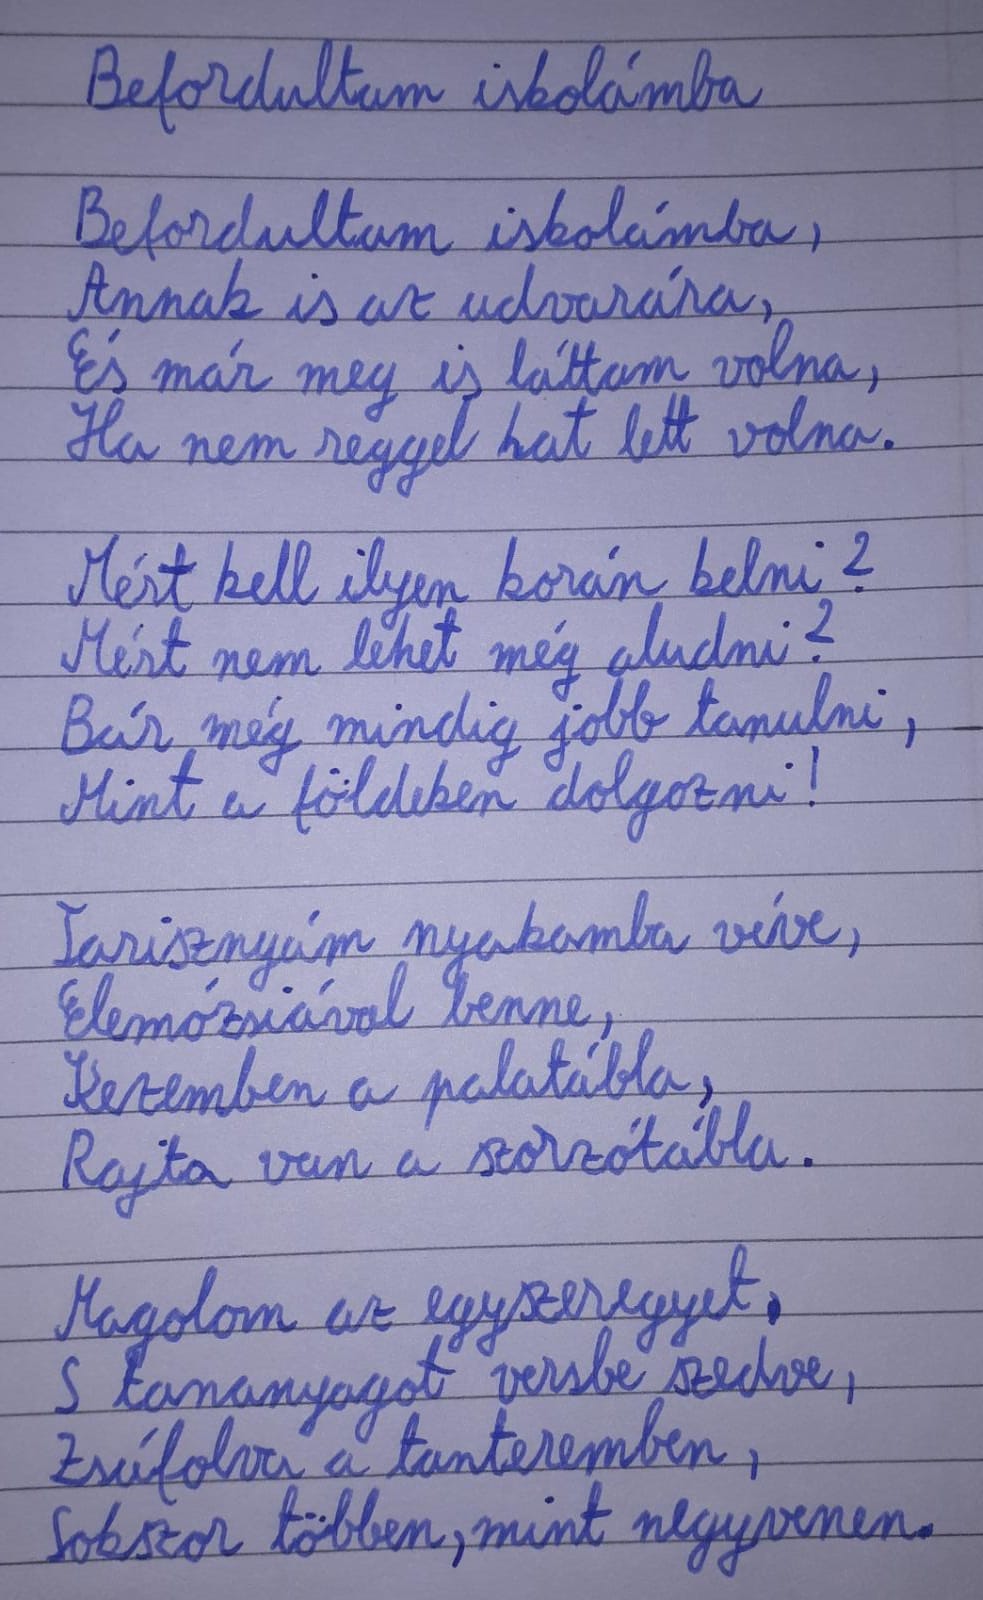 Befordultam iskolámba
Befordultam iskolámba,
Annak is az udvarára,
És már meg is láttam volna,
Ha nem reggel hat lett volna.
Mért kell ilyen korán kelni?
Mért nem lehet még aludni?
Bár még mindig jobb tanulni,
Mint a földeken dolgozni!
Tarisznyám nyakamba véve,
Elemózsiával benne,
Kezemben a palatábla,
Rajta van a szorzótábla.
Magolom az egyszeregyet,
S tananyagot versbe szedve,
Zsúfolva a tanteremben,
Sokszor többen, mint negyvenen.